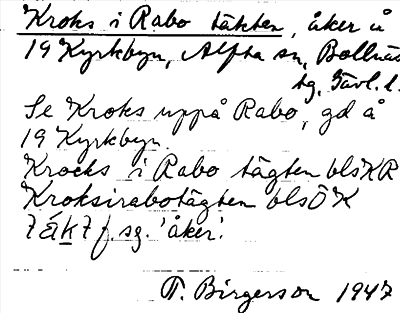 Kroks i Rabo täkten, åker å
19 Kyrkbyn, Alfta sn, Bollnäs
tg, Gävl. l.
Se Kroks uppå Rabo, gd å
19 Kyrkbyn.
Krocks i Rabo tägten blsKR
Kroksirabotägten blsÖK
f. sg. 'åker'.
T. Birgerson 1947